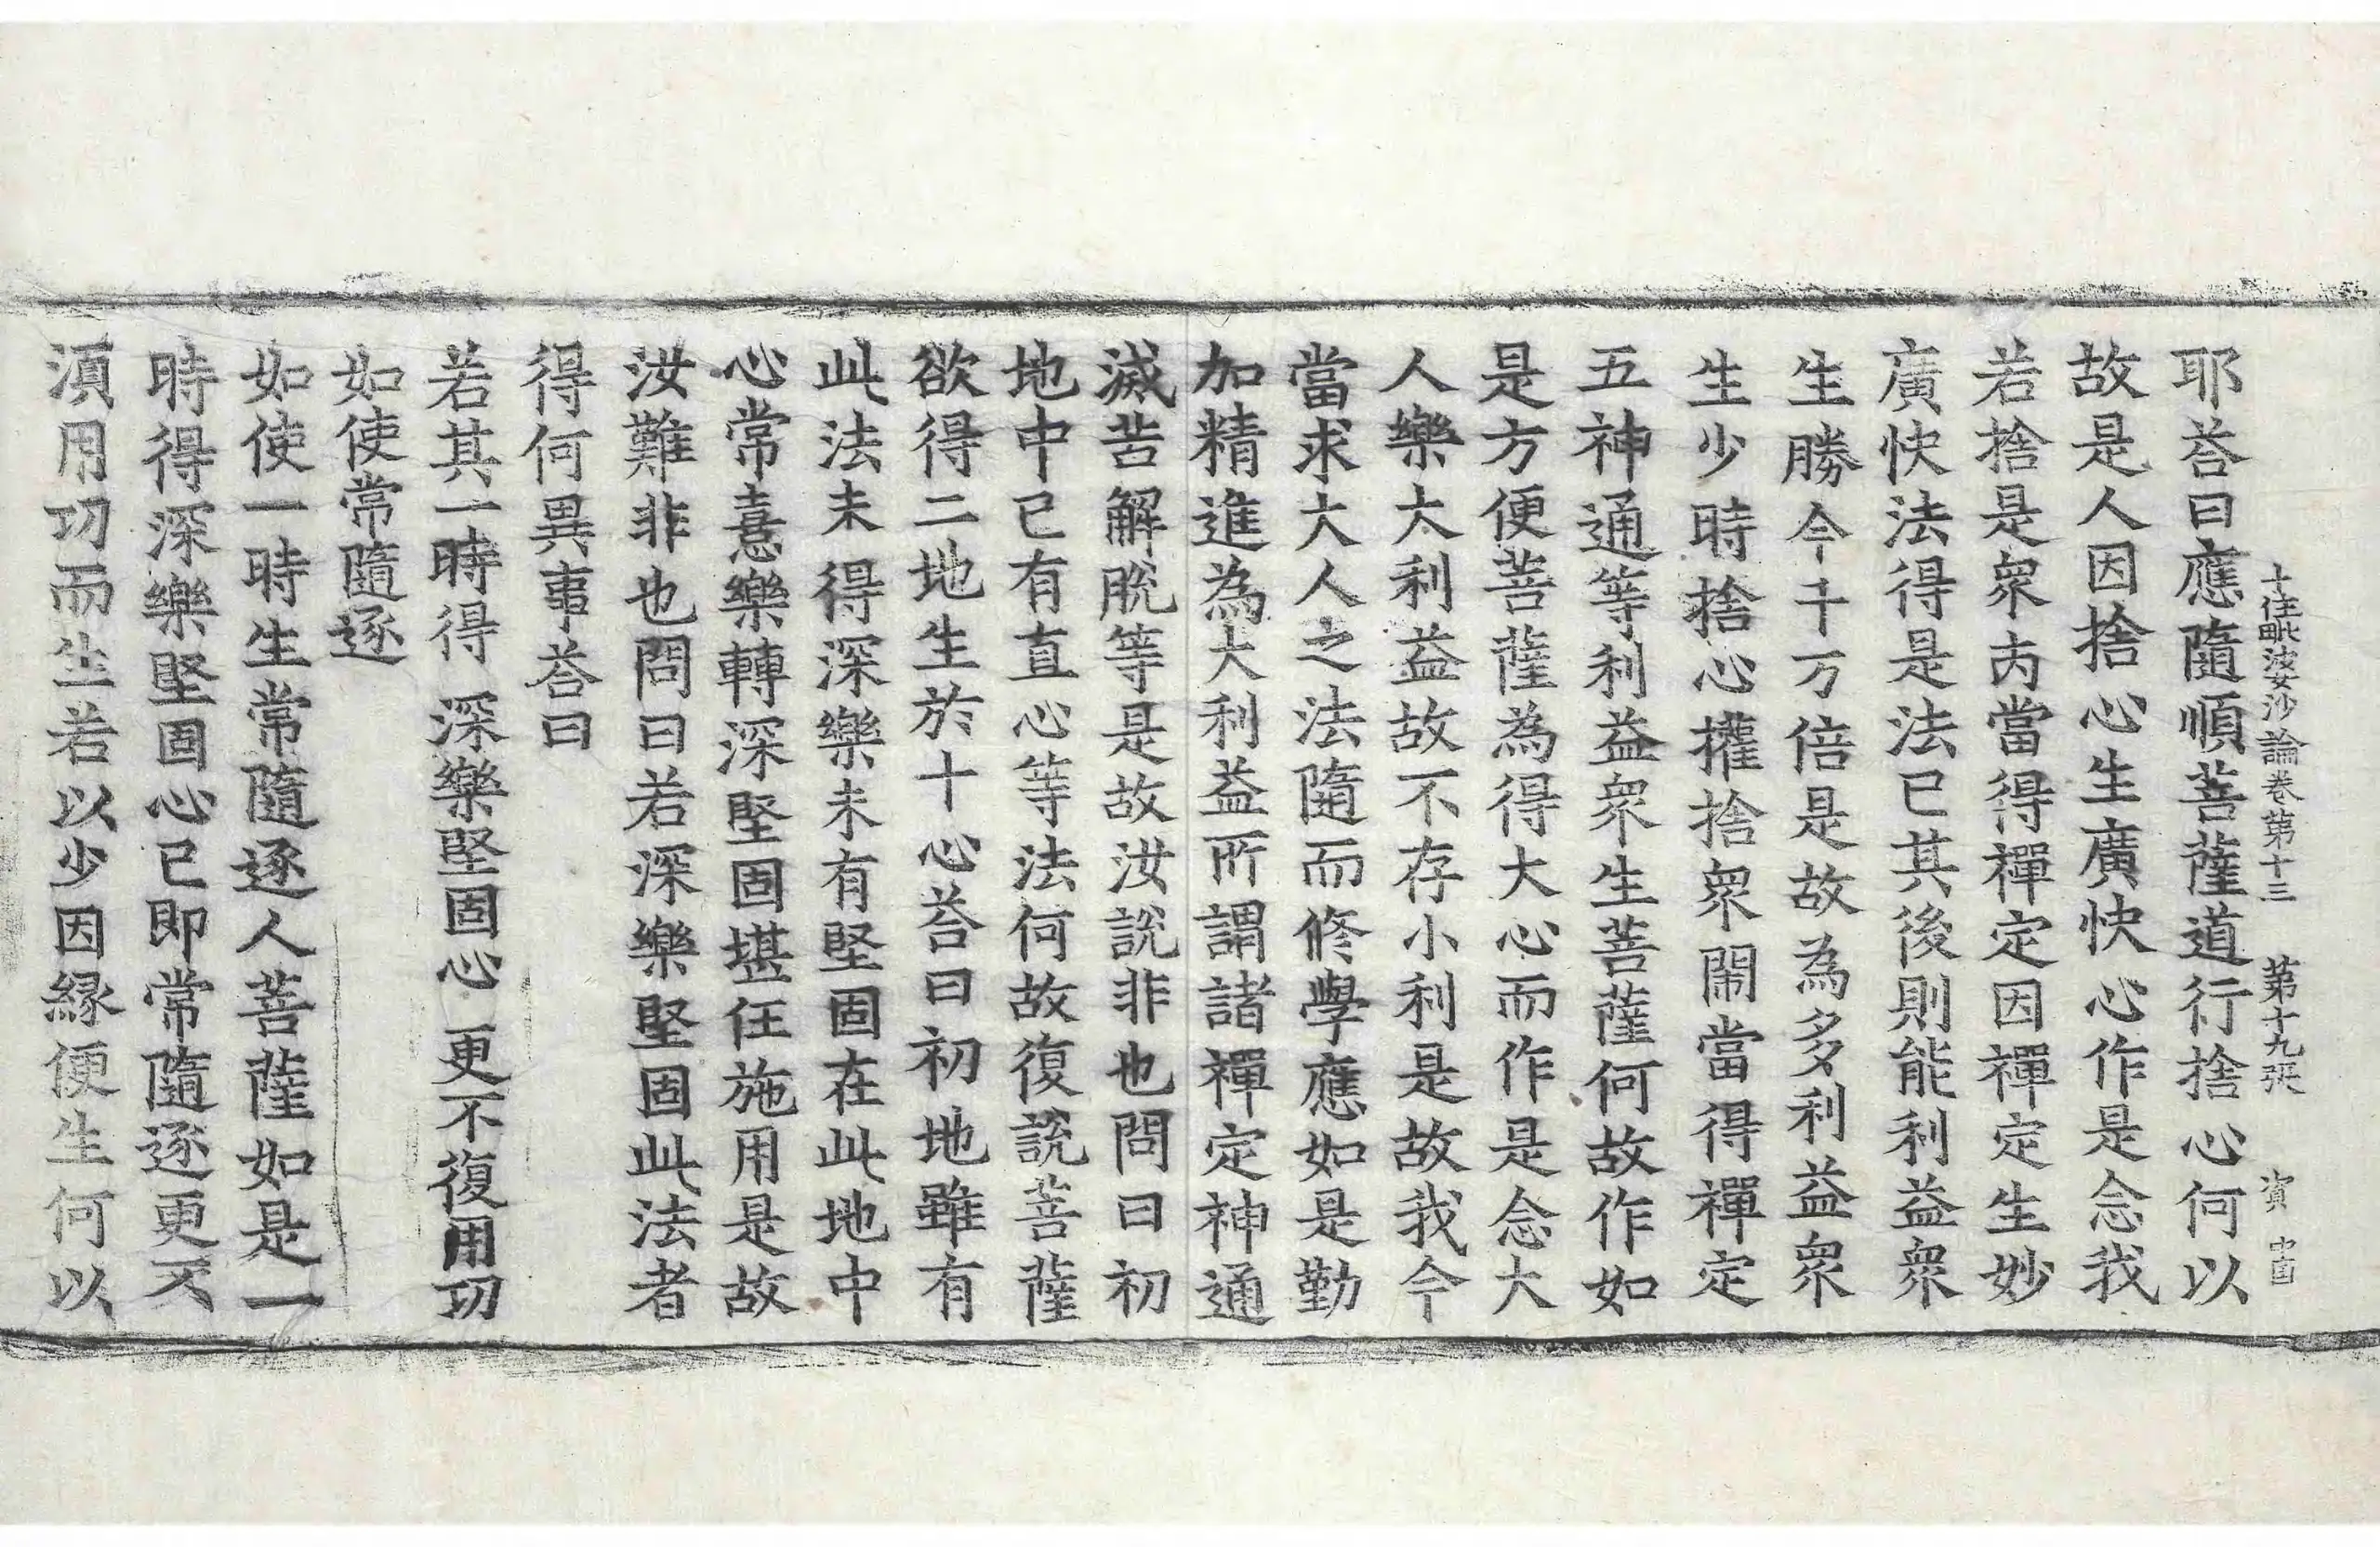 十住毗婆沙論卷第十三　第十九張　賓　中固
耶荅曰應隨順菩薩道行捨心何以
故是人因捨心生廣快心作是念我
若捨是衆內當得禪定因禪定生妙
廣快法得是法已其後則能利益衆
生勝今千万倍是故為多利益衆
生少時捨心㩲捨衆閙當得禪定
五神通等利益衆生菩薩何故作如
是方便菩薩為得大心而作是念大
人樂大利益故不存小利是故我今
當求大人之法隨而修學應如是勤
加精進為大利益所謂諸禪定神通
滅苦解脫等是故汝說非也問曰初
地中已有直心等法何故復說菩薩
欲得二地生於十心荅曰初地雖有
此法未得深樂未有堅固在此地中
心常憙樂轉深堅固堪任施用是故
汝難非也問曰若深樂堅固此法者
得何異事荅曰
若其一時得　深樂堅固心　更不復用功
如使常隨逐
如使一時生常隨逐人菩薩如是一
時得深樂堅固心已即常隨逐更不
湏用功而生若以少因緣便生何以